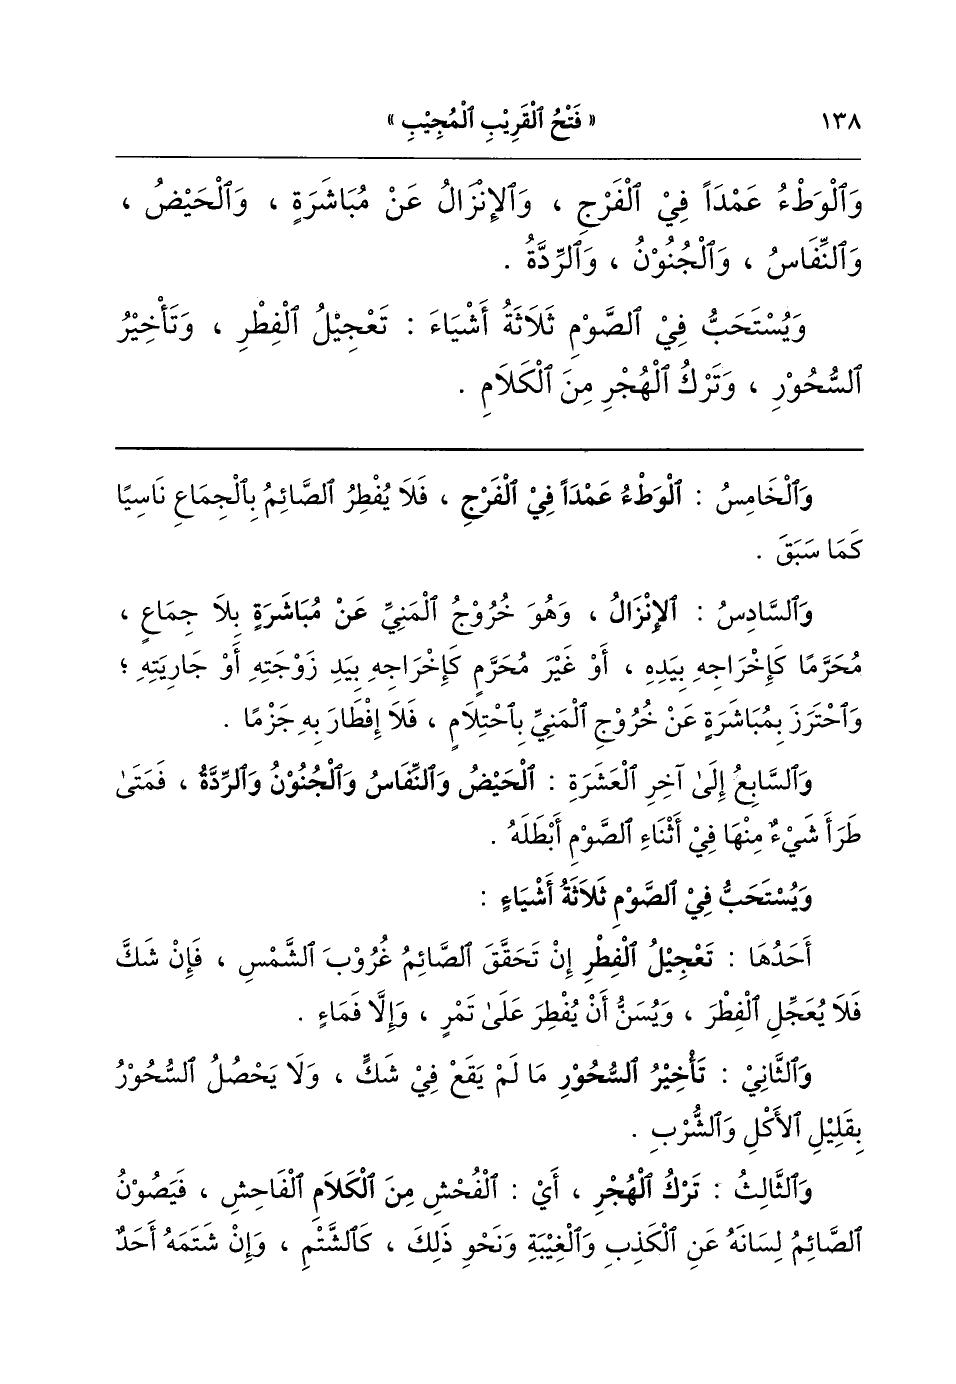 ١٣٨ « فَتْحُ ٱلْقَرِيْبِ ٱلْمُجِيْبِ »
وَٱلْوَطْءُ عَمْدَاً فِيْ ٱلْفَرْجِ ، وَٱلإِنْزَالُ عَنْ مُبَاشَرَةٍ ، وَٱلْحَيْضُ ،
وَٱلنِّفَاسُ ، وَٱلْجُنُوْنُ ، وَٱلرِّدَّةُ .
وَيُسْتَحَبُّ فِيْ ٱلصَّوْمِ ثَلَاثَةُ أَشْيَاءَ : تَعْجِيْلُ ٱلْفِطْرِ ، وَتَأْخِيْرُ
ٱلسُّحُوْرِ ، وَتَرْكُ ٱلْهُجْرِ مِنَ ٱلْكَلَامِ .
وَٱلْخَامِسُ : ٱلْوَطْءُ عَمْدَاً فِيْ ٱلْفَرْجِ ، فَلَا يُفْطِرُ ٱلصَّائِمُ بِٱلْجِمَاعِ نَاسِيًا
كَمَا سَبَقَ .
وَٱلسَّادِسُ : ٱلإِنْزَالُ ، وَهُوَ خُرُوْجُ ٱلْمَنِيِّ عَنْ مُبَاشَرَةٍ بِلَا جِمَاعٍ ،
مُحَرَّمًا كَإِخْرَاجِهِ بِيَدِهِ ، أَوْ غَيْرَ مُحَرَّمٍ كَإِخْرَاجِهِ بِيَدِ زَوْجَتِهِ أَوْ جَارِيَتِهِ ؛
وَٱحْتَرَزَ بِمُبَاشَرَةٍ عَنْ خُرُوْجِ ٱلْمَنِيِّ بِٱحْتِلَامٍ ، فَلَا إِفْطَارَ بِهِ جَزْمًا .
وَٱلسَّابِعُ إِلَىٰ آخِرِ ٱلْعَشَرَةِ : ٱلْحَيْضُ وَٱلنِّفَاسُ وَٱلْجُنُوْنُ وَٱلرِّدَّةُ ، فَمَتَىٰ
طَرَأَ شَيْءٌ مِنْهَا فِيْ أَثْنَاءِ ٱلصَّوْمِ أَبْطَلَهُ .
وَيُسْتَحَبُّ فِيْ ٱلصَّوْمِ ثَلَاثَةُ أَشْيَاءٍ :
أَحَدُهَا : تَعْجِيْلُ ٱلْفِطْرِ إِنْ تَحَقَّقَ ٱلصَّائِمُ غُرُوْبَ ٱلشَّمْسِ ، فَإِنْ شَكَّ
فَلَا يُعَجِّلِ ٱلْفِطْرَ ، وَيُسَنُّ أَنْ يُفْطِرَ عَلَىٰ تَمْرٍ ، وَإِلَّا فَمَاءٍ .
وَٱلثَّانِيْ : تَأْخِيْرُ ٱلسُّحُوْرِ مَا لَمْ يَقَعْ فِيْ شَكٍّ ، وَلَا يَحْصُلُ ٱلسُّحُوْرُ
بِقَلِيْلِ ٱلأَكْلِ وَٱلشُّرْبِ .
وَٱلثَّالِثُ : تَرْكُ ٱلْهُجْرِ ، أَيْ : ٱلْفُحْشِ مِنَ ٱلْكَلَامِ ٱلْفَاحِشِ ، فَيَصُوْنُ
ٱلصَّائِمُ لِسَانَهُ عَنِ ٱلْكَذِبِ وَٱلْغِيْبَةِ وَنَحْوِ ذَلِكَ ، كَٱلشَّتْمِ ، وَإِنْ شَتَمَهُ أَحَدٌ